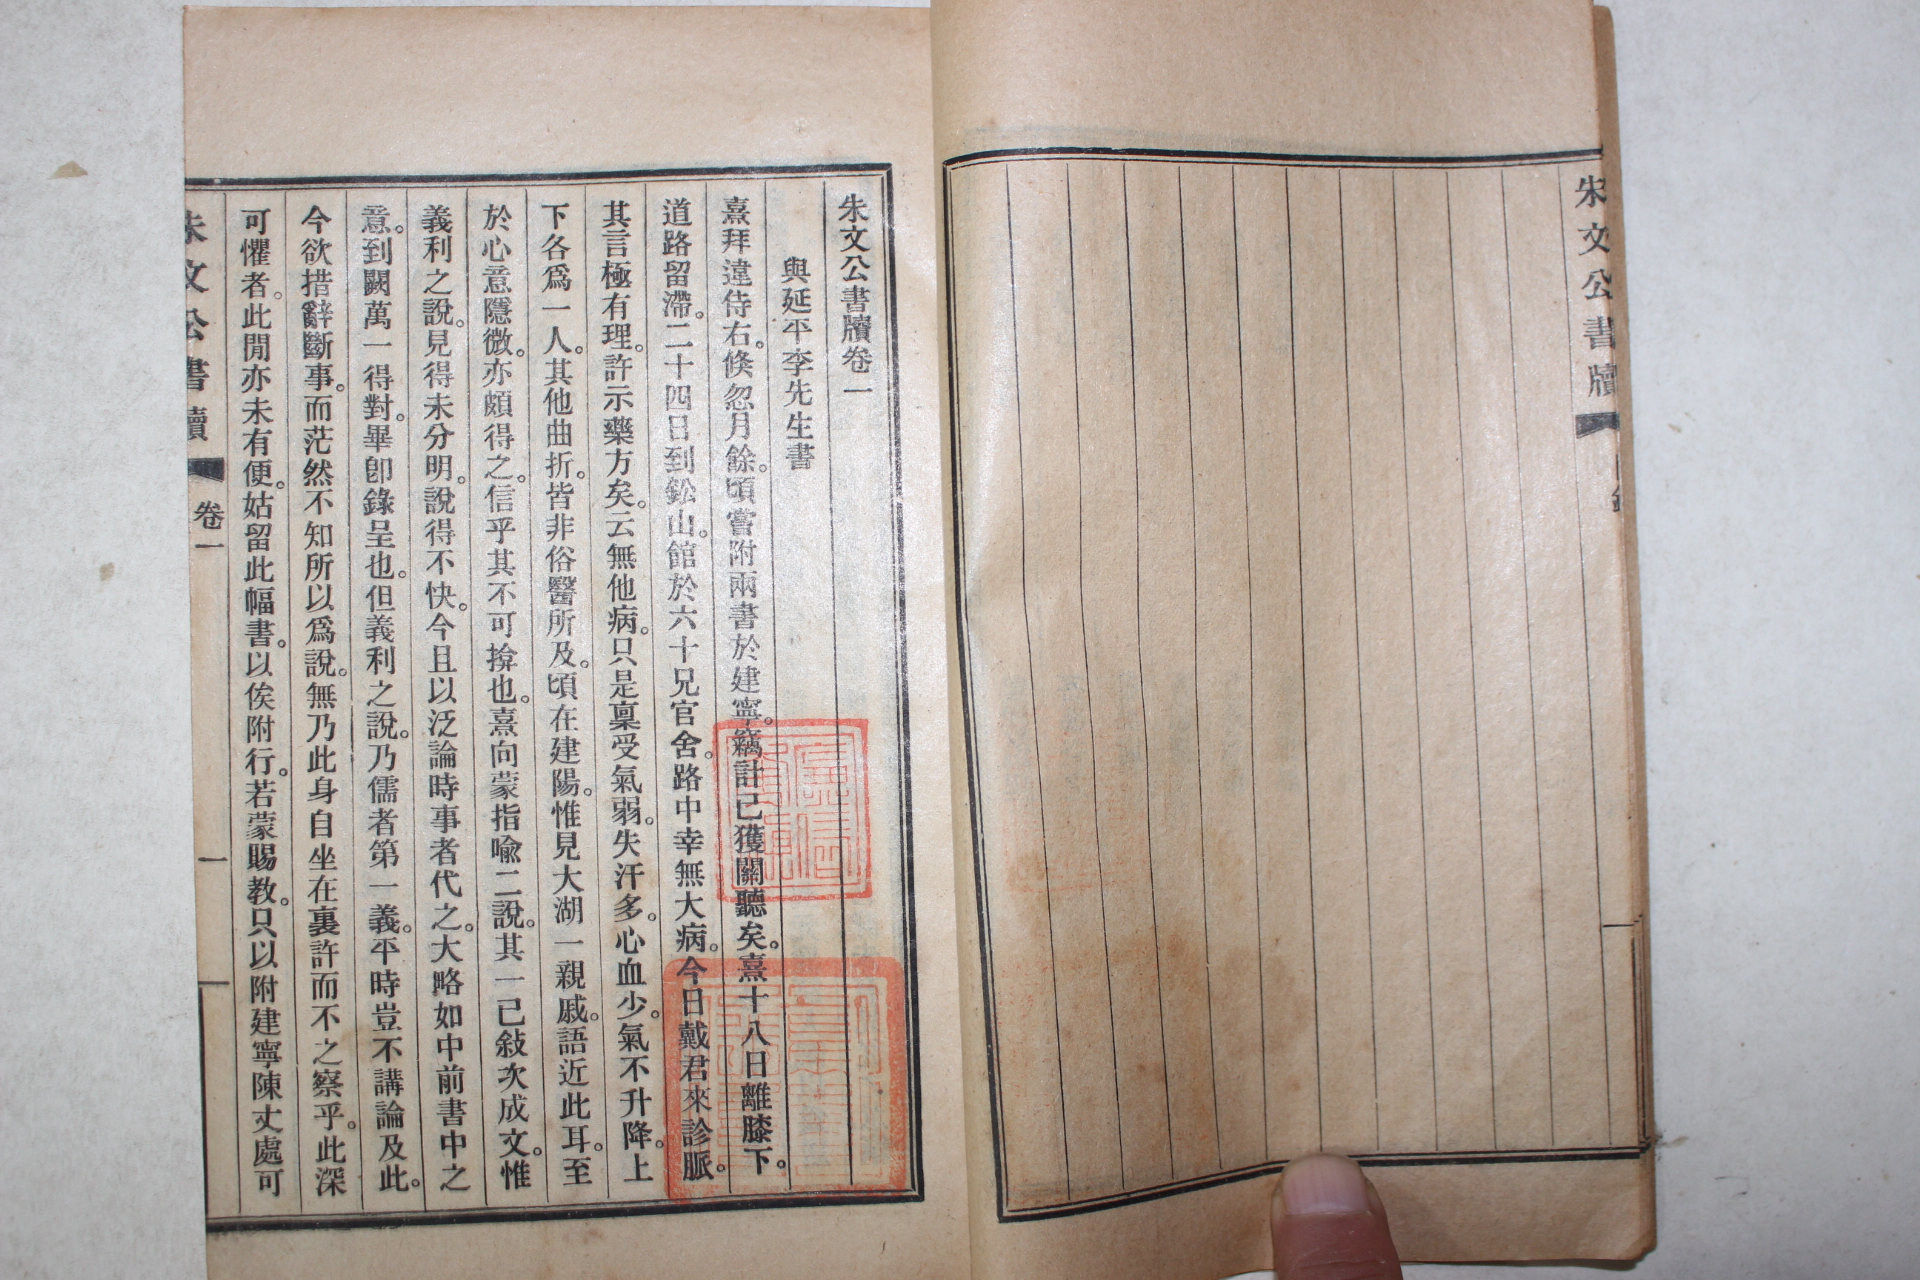 朱文公書牘
朱文公書牘卷一
與延平李先生書
熹拜違侍右。倏忽月餘。頃嘗附兩書於建寧。竊計已獲關聽矣。熹十八日離膝下。
道路留滯。二十四日到鉛山。館於六十兄官舍。路中幸無大病。今日戴君來診脈。
其言極有理。許示藥方矣。云無他病。只是稟受氣弱。失汗多。心血少。氣不升降。上
下各爲一人。其他曲折。皆非俗醫所及。頃在建陽。惟見大湖一親戚。語近此耳。至
於心意隱微。亦頗得之。信乎其不可揜也。熹向蒙指喩二說。其一已敍次成文。惟
義利之說。見得未分明。說得不快。今且以泛論時事者代之。大略如中前書中之
意。到闕萬一得對。畢卽錄呈也。但義利之說。乃儒者第一義。平時豈不講論及此。
今欲措辭斷事。而茫然不知所以爲說。無乃此身自坐在裏許而不之察乎。此深
可懼者。此間亦未有便。姑留此幅書。以俟附行。若蒙賜敎。只以附建寧陳丈處可
朱文公書牘 卷一 一